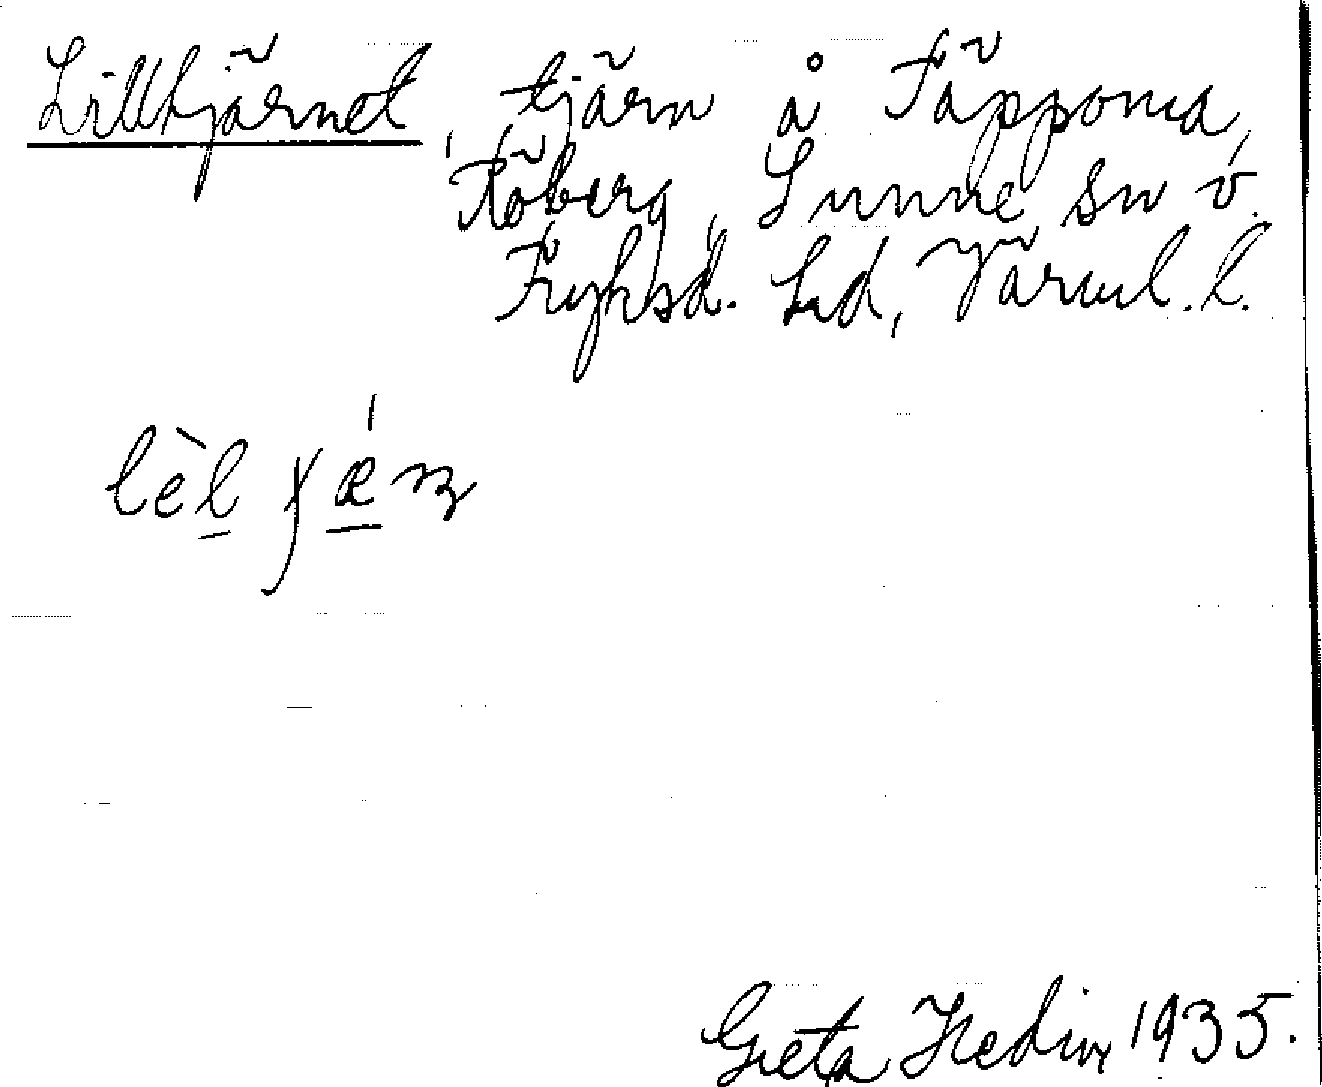 Lilltjärnet, tjärn å Täpporna,
Röberg, Sunne sn ö.
Fryksd. hd, Värml. l.
lèl
Greta Hedin 1935.